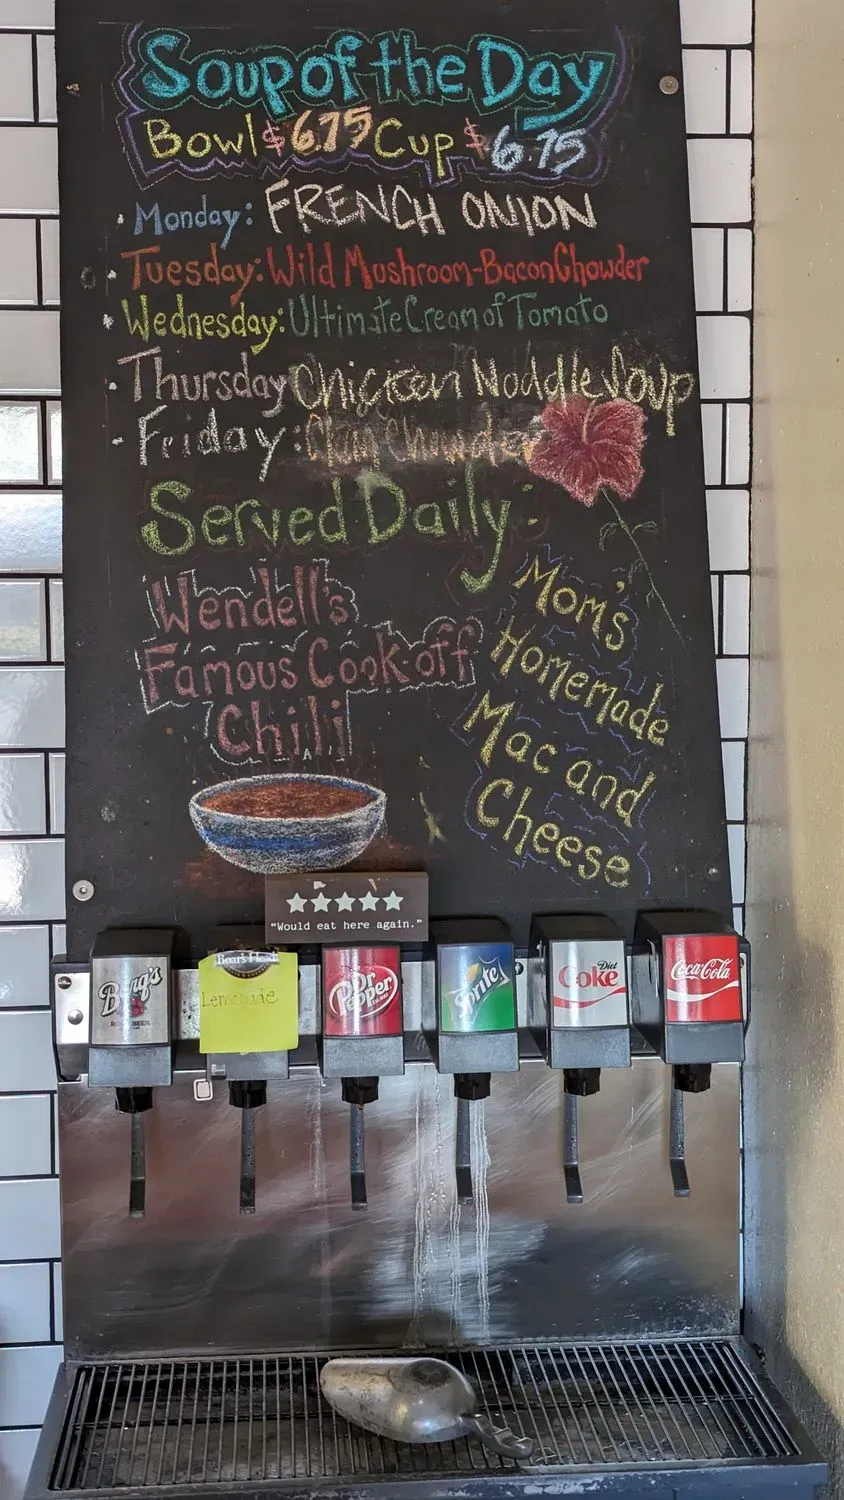 Soup of the Day
Bowl $6.75 Cup $6.75
Monday: FRENCH ONION
Tuesday: Wild Mushroom-Bacon Chowder
Wednesday: Ultimate Cream of Tomato
Thursday Chicken Noddle Soup
Friday: Clam Chowder
Served Daily:
Wendell's
Famous Cook-off
Chili
Mom's
Homemade
Mac and
Cheese
★★★★★
"Would eat here again."
Barq's
ROOT BEER
Boar's Head
Lemonade
Dr Pepper
Sprite
Diet
Coke
Coca-Cola